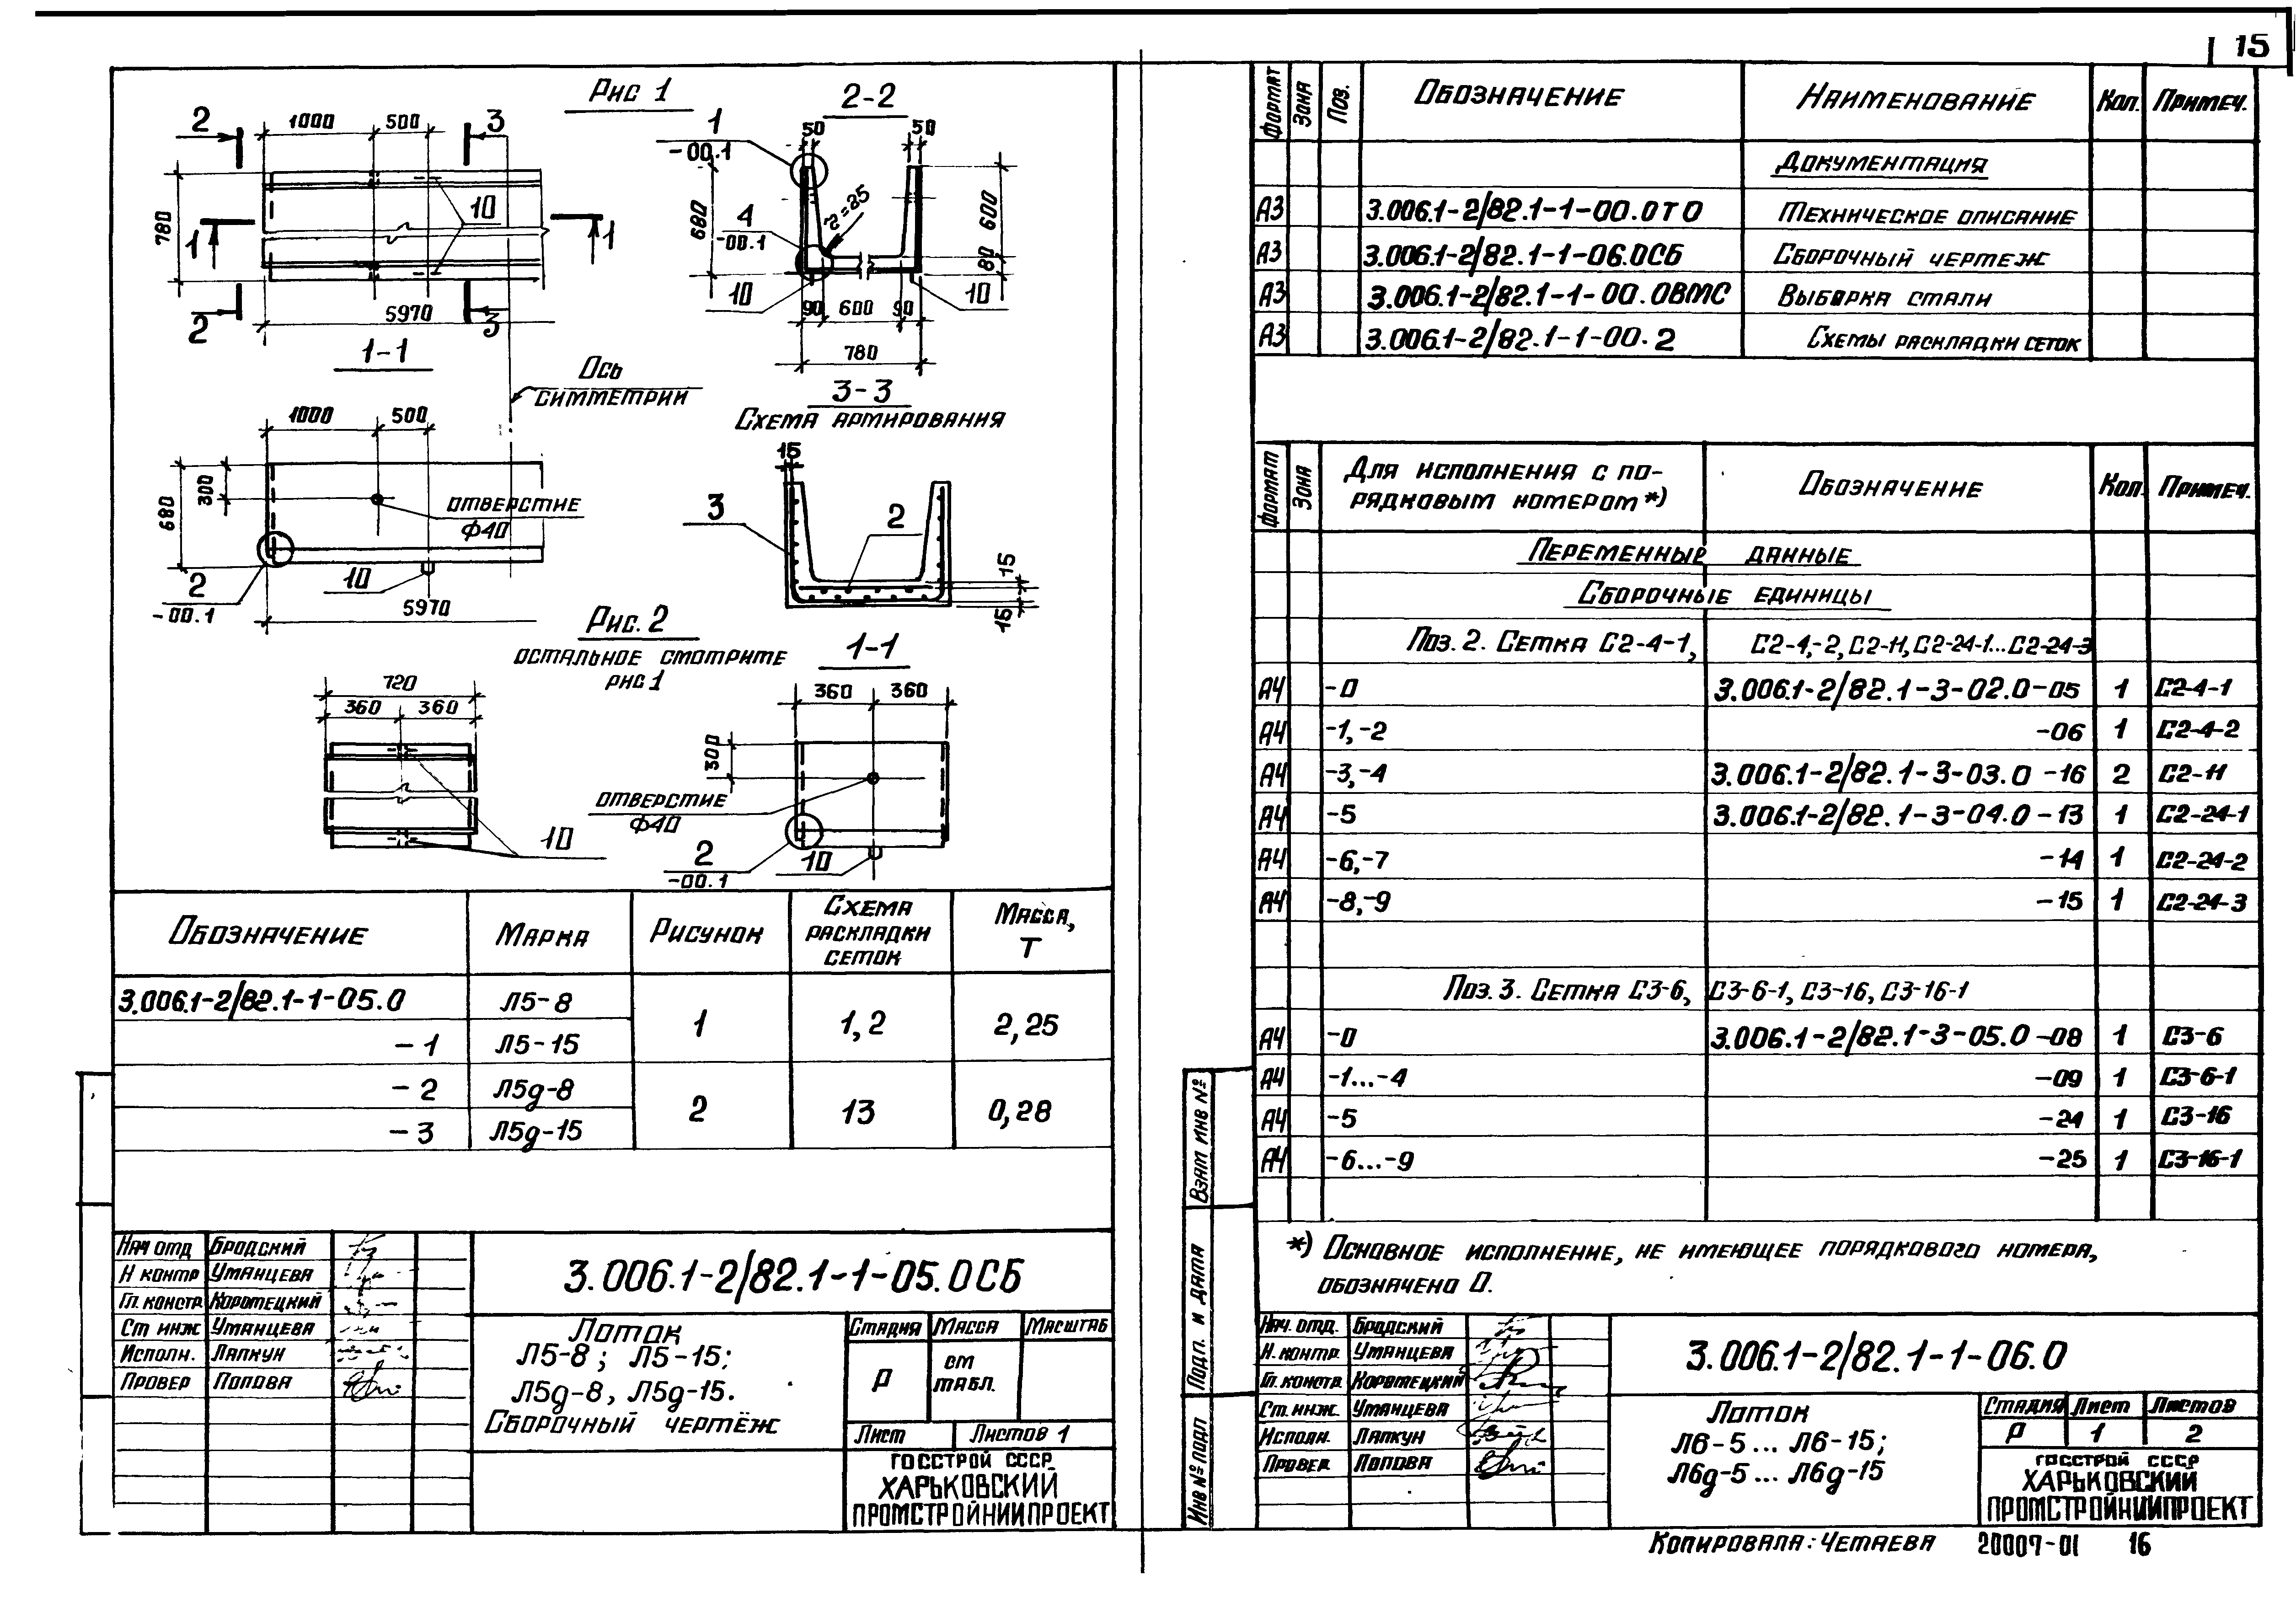 15
Рис 1
2-2
2
1000
500
3
1
-00.1
50
50
780
10
1
1
680
4
-00.1
r=25
600
80
2
5970
3
10
10
90
600
90
780
1-1
Ось
симметрии
3-3
Схема армирования
1000
500
15
680
300
отверстие
ф40
3
2
15
15
2
-00.1
10
5970
Рис. 2
остальное смотрите
рис 1
1-1
720
360
360
360
360
300
отверстие
ф40
10
2
-00.1
10
Обозначение
Марка
Рисунок
Схема
раскладки
сеток
Масса,
Т
3.006.1-2/82.1-1-05.0
Л5-8
1
1,2
2,25
-1
Л5-15
-2
Л5д-8
2
13
0,28
-3
Л5д-15
Нач отд Бродский
Н контр Уманцева
Гл. констр Коротецкий
Ст инж Уманцева
Исполн. Лапкун
Провер Попова
3.006.1-2/82.1-1-05.0СБ
Лоток
Л5-8; Л5-15;
Л5д-8, Л5д-15.
Сборочный чертёж
Стадия Масса Масштаб
Р
см
табл.
Лист
Листов 1
ГОССТРОЙ СССР
ХАРЬКОВСКИЙ
ПРОМСТРОЙНИИПРОЕКТ
Формат Зона Поз. Обозначение Наименование Кол. Примеч.
Документация
А3 3.006.1-2/82.1-1-00.0ТО Техническое описание
А3 3.006.1-2/82.1-1-06.0СБ Сборочный чертеж
А3 3.006.1-2/82.1-1-00.0ВМС Выборка стали
А3 3.006.1-2/82.1-1-00.2 Схемы раскладки сеток
Формат Зона Для исполнения с по-
рядковым номером *) Обозначение Кол. Примеч.
Переменные данные
Сборочные единицы
Поз. 2. Сетка С2-4-1, С2-4-2, С2-11, С2-24-1...С2-24-3
А4 -0 3.006.1-2/82.1-3-02.0-05 1 С2-4-1
А4 -1,-2 -06 1 С2-4-2
А4 -3,-4 3.006.1-2/82.1-3-03.0-16 2 С2-11
А4 -5 3.006.1-2/82.1-3-04.0-13 1 С2-24-1
А4 -6,-7 -14 1 С2-24-2
А4 -8,-9 -15 1 С2-24-3
Поз. 3. Сетка С3-6, С3-6-1, С3-16, С3-16-1
А4 -0 3.006.1-2/82.1-3-05.0-08 1 С3-6
А4 -1...-4 -09 1 С3-6-1
А4 -5 -24 1 С3-16
А4 -6...-9 -25 1 С3-16-1
*) Основное исполнение, не имеющее порядкового номера,
обозначено 0.
Взам инв №
Подп. и дата
Инв № подл
Нач. отд. Бродский
Н. контр. Уманцева
Гл. констр. Коротецкий
Ст. инж. Уманцева
Исполн. Лапкун
Провер. Попова
3.006.1-2/82.1-1-06.0
Лоток
Л6-5... Л6-15;
Л6д-5... Л6д-15
Стадия Лист Листов
Р 1 2
ГОССТРОЙ СССР
ХАРЬКОВСКИЙ
ПРОМСТРОЙНИИПРОЕКТ
Копировала: Четаева 20007-01 16